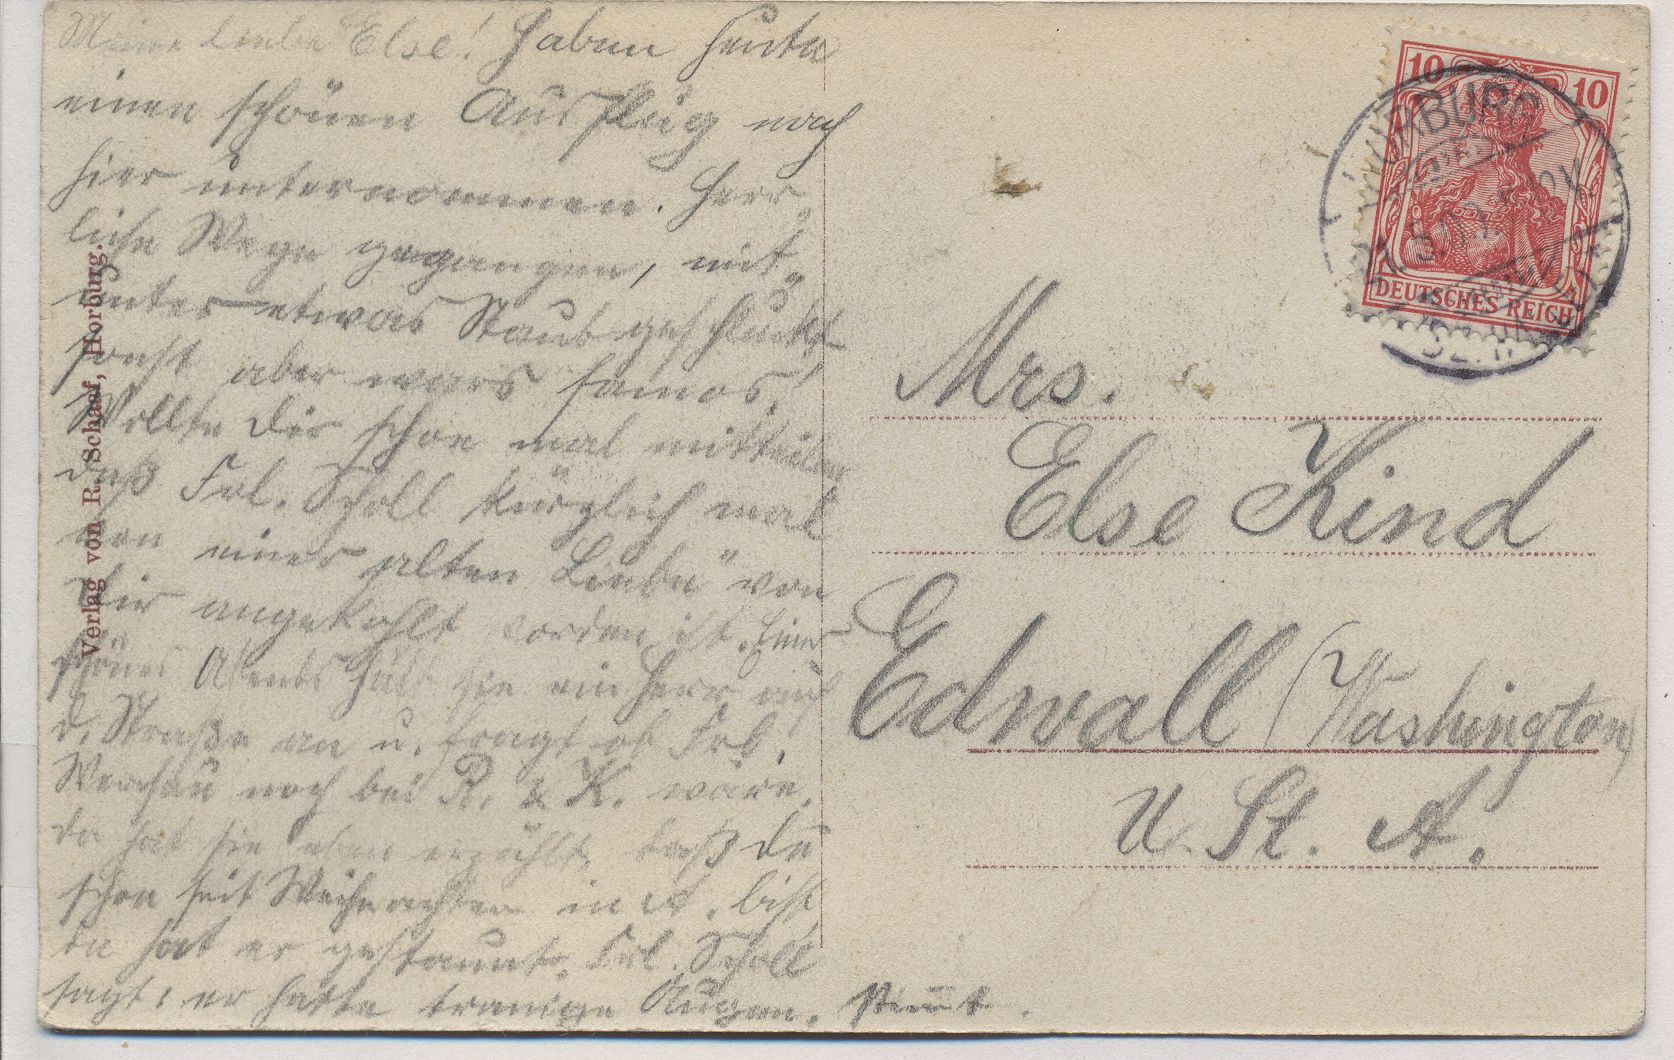 Meine liebe Else! Haben heute
einen schönen Ausflug nach
hier unternommen. Herr„
liche Wege gegangen, mit„
unter etwas Staub geschluckt
sonst aber wars famos!
Wollte Dir schon mal mitteilen
daß Frl. Scholl kürzlich mal
von einer alten Liebe" von
Dir angekohlt worden ist. Eines
schönen Abends hält sie ein Herr auf
d. Straße an u. fragt ob Frl.
noch bei R. & K. wäre,
da hat sie eben erzählt, daß Du
schon seit Weihnachten in A. bist
da hat er gestaunt. Frl. Scholl
sagt, er hatte traurige Augen. stimmt.
Verlag von R. Schaaf, Horburg.
10 10
DEUTSCHES REICH
Mrs.
Else Kind
Edwall (Washington)
U. St. A.